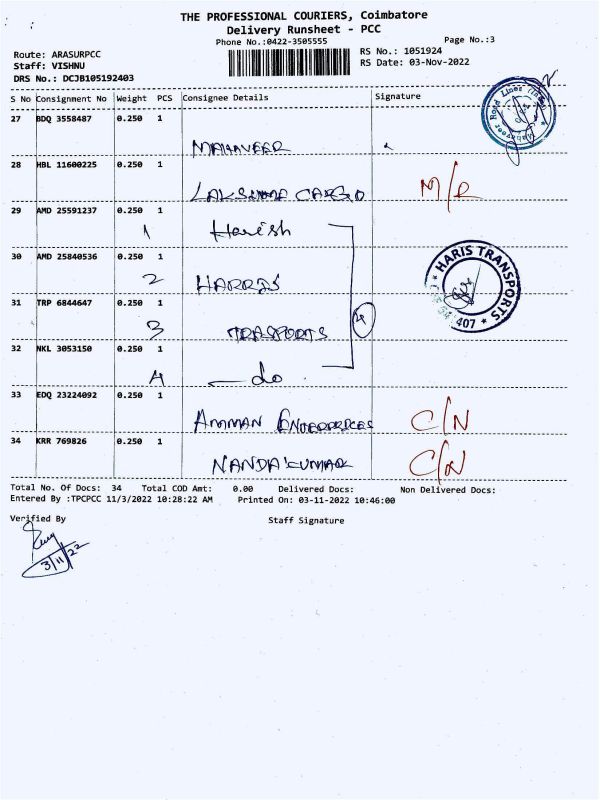 THE PROFESSIONAL COURIERS, Coimbatore
Delivery Runsheet - PCC
Phone No.:0422-3505555 Page No.:3
Route: ARASURPCC RS No.: 1051924
Staff: VISHNU RS Date: 03-Nov-2022
DRS No.: DCJB105192403
S No Consignment No Weight PCS Consignee Details Signature
27 BDQ 3558487 0.250 1
MAHAVEER
28 HBL 11600225 0.250 1
CARGO M/R
29 AMD 25591237 0.250 1
1 Harish
30 AMD 25840536 0.250 1
2 HARRIS
HARIS TRANSPORTS
407
31 TRP 6844647 0.250 1
3 TRASPORTS 4
32 NKL 3053150 0.250 1
4 — do
33 EDQ 23224092 0.250 1
AMMAN ENTERPRICES C/N
34 KRR 769826 0.250 1
NANDAKUMAR C/N
Total No. Of Docs: 34 Total COD Amt: 0.00 Delivered Docs: Non Delivered Docs:
Entered By :TPCPCC 11/3/2022 10:28:22 AM Printed On: 03-11-2022 10:46:00
Verified By Staff Signature
3/11/22